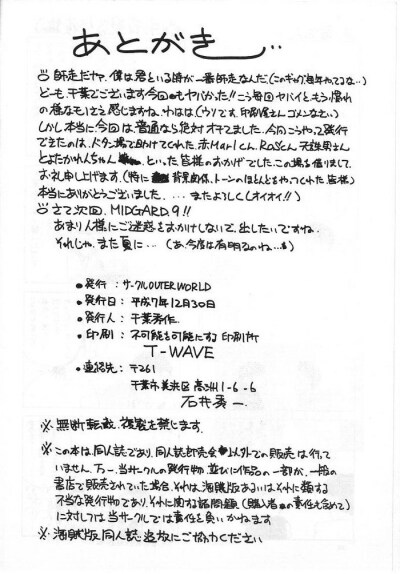 あとがき…
◎師走だァァ、僕は君といる時が一番師走なんだ(このギャグ、毎年やってるな…)
どーも、千葉でございます今回もヤバかった!!こう毎回ヤバイと、もう慣れ
の様なモノさえ感じますね、わはは(ウソです、印刷屋さん、ゴメンなさい)
しかし本当に今回は、普通なら絶対オチてました。今回こうやって発行
できたのは、ドタン場で助けてくれた、赤Marlくん、RoSくん、天鮭男さん
とよたかれんちゃん といった皆様のおかげでした。この場を借りまして、
お礼申し上げます。(特に 背景関係、トーンのほとんどをやってくれた皆様)
本当にありがとうございました。…またよろしく(オイオイ!!)
◎さて次回、MIDGARD.9!!
あまり人様にご迷惑をおかけしないで、出したいですね
それじゃ、また夏に…(あ、今度は有明なのね…)
●発行:サークルOUTERWORLD
●発行日:平成7年12月30日
●発行人:千葉秀作
●印刷:不可能を可能にする印刷所
T-WAVE
●連絡先:〒261
千葉市美浜区高洲1-6-6
石井秀一
※無断転載、複製を禁じます
※この本は、同人誌であり、同人誌即売会以外での販売は行って
いません。万一、当サークルの発行物、並びに作品の一部が、一般の
書店で販売されていた場合、それは、海賊版あるいはそれに類する
不当な発行物であり、それに関する諸問題(購入者の責任も含めて)
に対しては当サークルでは責任を負いかねます
※海賊版同人誌追放にご協力ください